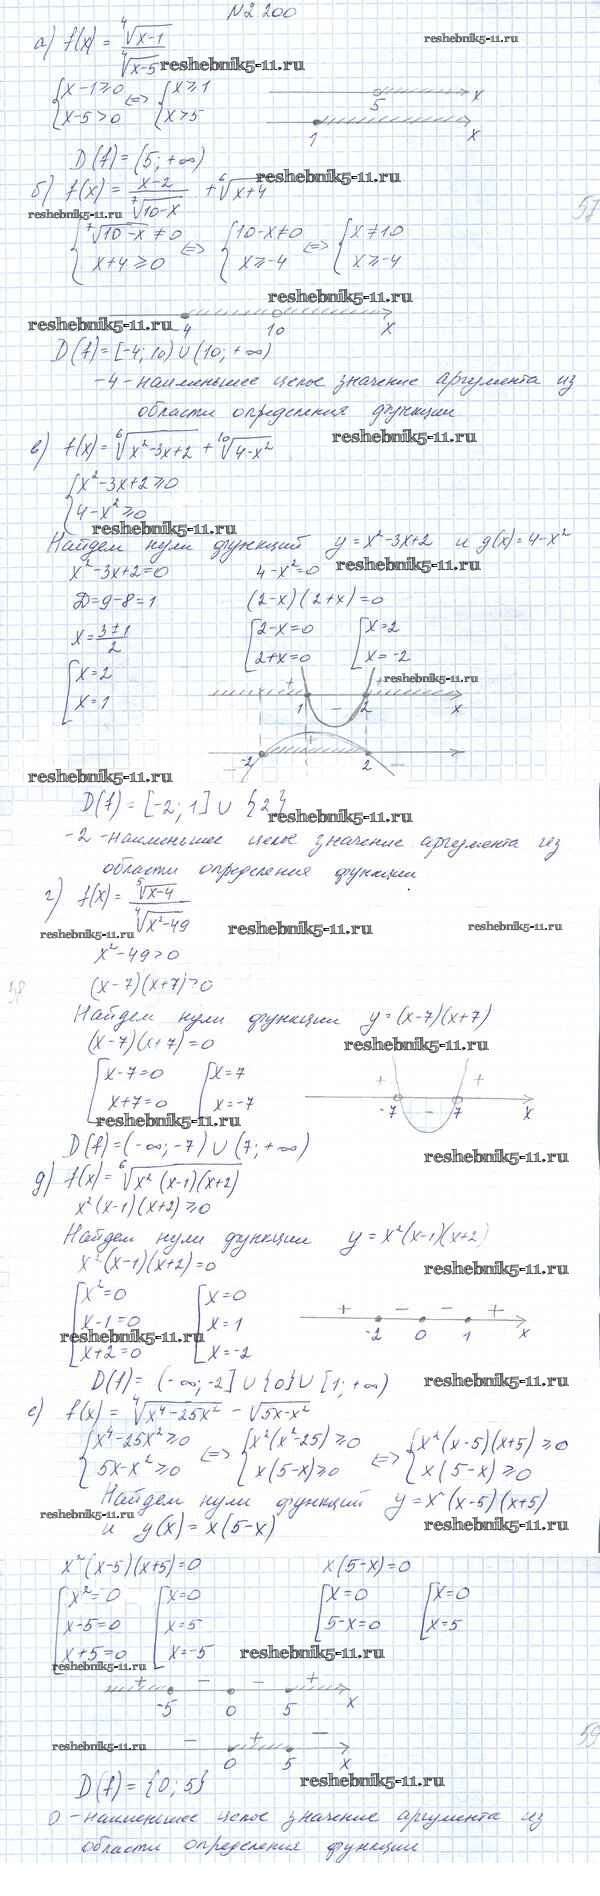 №2.200
а) f(x) = ⁴√(x-1) / ⁴√(x-5)
reshebnik5-11.ru
reshebnik5-11.ru
{x-1≥0 {x≥1
{x-5>0 <=> {x>5
5 x
1 x
D(f)=(5;+∞)
reshebnik5-11.ru
б) f(x) = (x-2) / ⁷√(10-x) + ⁶√(x+4)
reshebnik5-11.ru
{⁷√(10-x)≠0 <=> {10-x≠0 <=> {x≠10
{x+4≥0 {x≥-4 {x≥-4
reshebnik5-11.ru
reshebnik5-11.ru
-4 10 x
D(f)=[-4;10)∪(10;+∞)
-4-наименьшее целое значение аргумента из
области определения функции
reshebnik5-11.ru
в) f(x)= ⁶√(x²-3x+2) + ¹⁰√(4-x²)
{x²-3x+2≥0
{4-x²≥0
reshebnik5-11.ru
Найдем нули функций y=x²-3x+2 и g(x)=4-x²
x²-3x+2=0 4-x²=0 reshebnik5-11.ru
D=9-8=1 (2-x)(2+x)=0
x=(3±1)/2 [2-x=0 [x=2
[2+x=0 [x=-2
[x=2
[x=1
reshebnik5-11.ru
+ - +
1 2 x
- + -
-2 2
reshebnik5-11.ru
D(f)=[-2;1]∪{2}
reshebnik5-11.ru
-2-наименьшее целое значение аргумента из
области определения функции
г) f(x)= ⁵√(x-4) / ⁴√(x²-49)
reshebnik5-11.ru
reshebnik5-11.ru
reshebnik5-11.ru
x²-49>0
(x-7)(x+7)>0
Найдем нули функции y=(x-7)(x+7)
(x-7)(x+7)=0
reshebnik5-11.ru
[x-7=0 [x=7
[x+7=0 [x=-7
+ - +
-7 7 x
reshebnik5-11.ru
D(f)=(-∞;-7)∪(7;+∞)
reshebnik5-11.ru
д) f(x)= ⁶√(x²(x-1)(x+2))
x²(x-1)(x+2)≥0
Найдем нули функции y=x²(x-1)(x+2)
x²(x-1)(x+2)=0
reshebnik5-11.ru
[x²=0 [x=0
[x-1=0 [x=1
[x+2=0 [x=-2
+ - - +
-2 0 1 x
reshebnik5-11.ru
D(f)=(-∞;-2]∪{0}∪[1;+∞)
reshebnik5-11.ru
е) f(x)= ⁴√(x⁴-25x²) - √(5x-x²)
{x⁴-25x²≥0 <=> {x²(x²-25)≥0 <=> {x²(x-5)(x+5)≥0
{5x-x²≥0 {x(5-x)≥0 {x(5-x)≥0
Найдем нули функций y=x²(x-5)(x+5)
reshebnik5-11.ru
и g(x)=x(5-x)
reshebnik5-11.ru
x²(x-5)(x+5)=0 x(5-x)=0
[x²=0 [x=0 [x=0 [x=0
[x-5=0 [x=5 [5-x=0 [x=5
[x+5=0 [x=-5
reshebnik5-11.ru
reshebnik5-11.ru
+ - - +
-5 0 5 x
- + -
0 5 x
reshebnik5-11.ru
D(f)={0;5}
reshebnik5-11.ru
0-наименьшее целое значение аргумента из
области определения функции
57
58
59